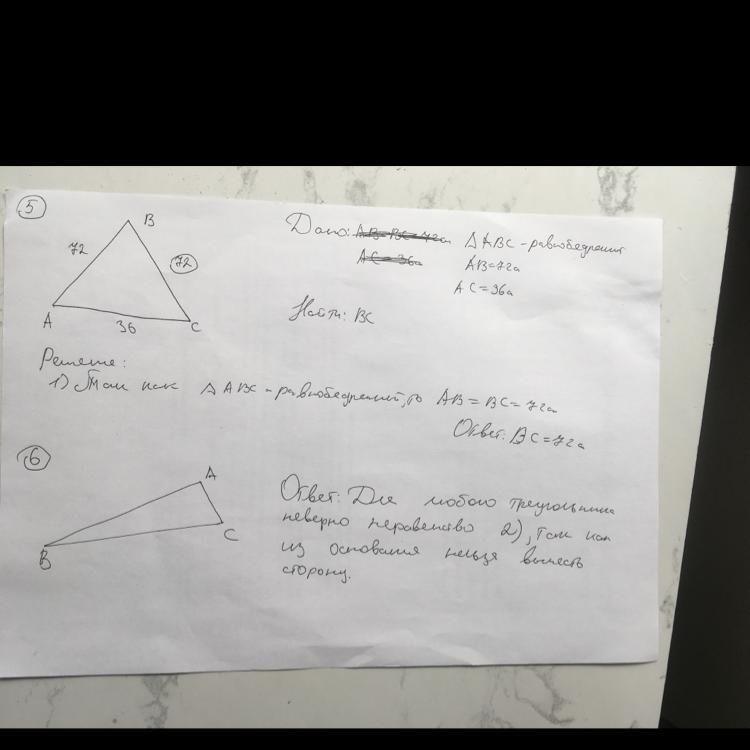 5
B
72
72
A
36
C
Дано: AB=BC=72см ΔABC - равнобедрений
AC=36см AB=72см
AC=36см
Найти: BC
Решение:
1) Так как ΔABC - равнобедрений, то AB=BC=72см
Ответ: BC=72см
6
A
C
B
Ответ: Для любого треугольника
неверно неравенство 2), так как
из основания нельзя вычесть
сторону.